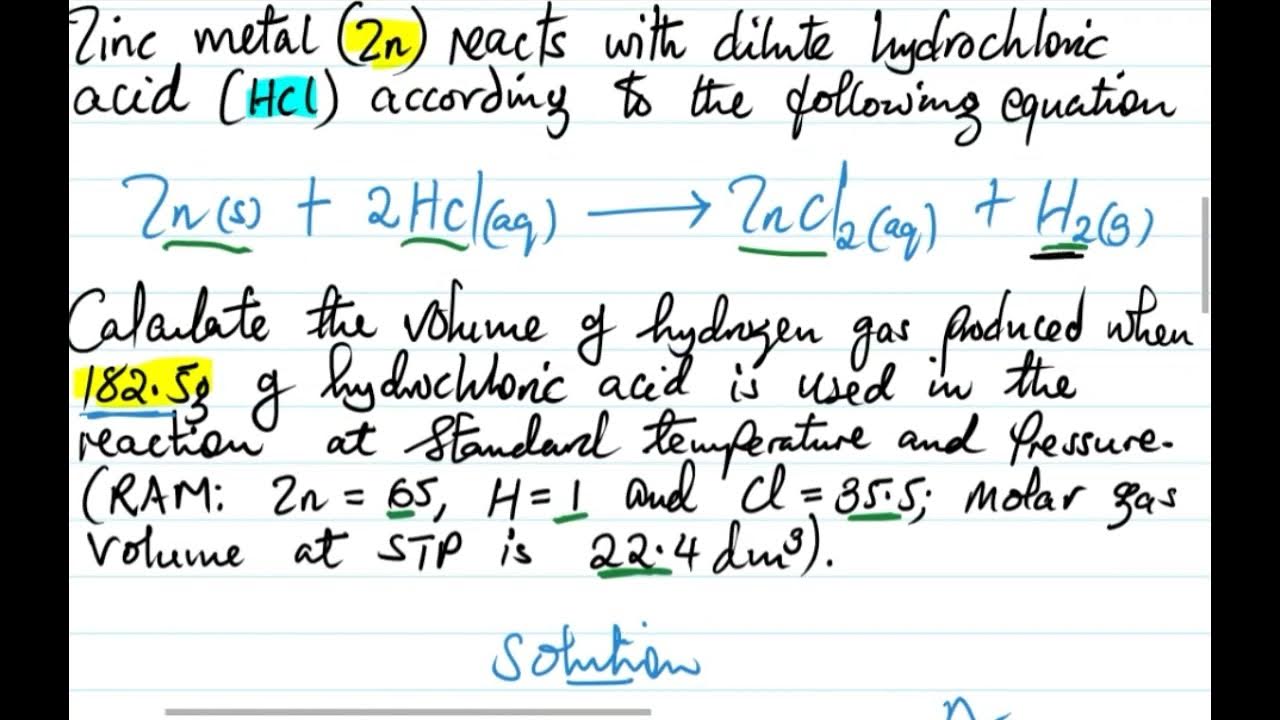 Zinc metal (Zn) reacts with dilute hydrochloric
acid (HCl) according to the following equation
Zn(s) + 2HCl(aq) → ZnCl₂(aq) + H₂(g)
Calculate the volume of hydrogen gas produced when
182.5g of hydrochloric acid is used in the
reaction at standard temperature and pressure.
(RAM: Zn = 65, H = 1 and Cl = 35.5; molar gas
volume at STP is 22.4 dm³).
Solution